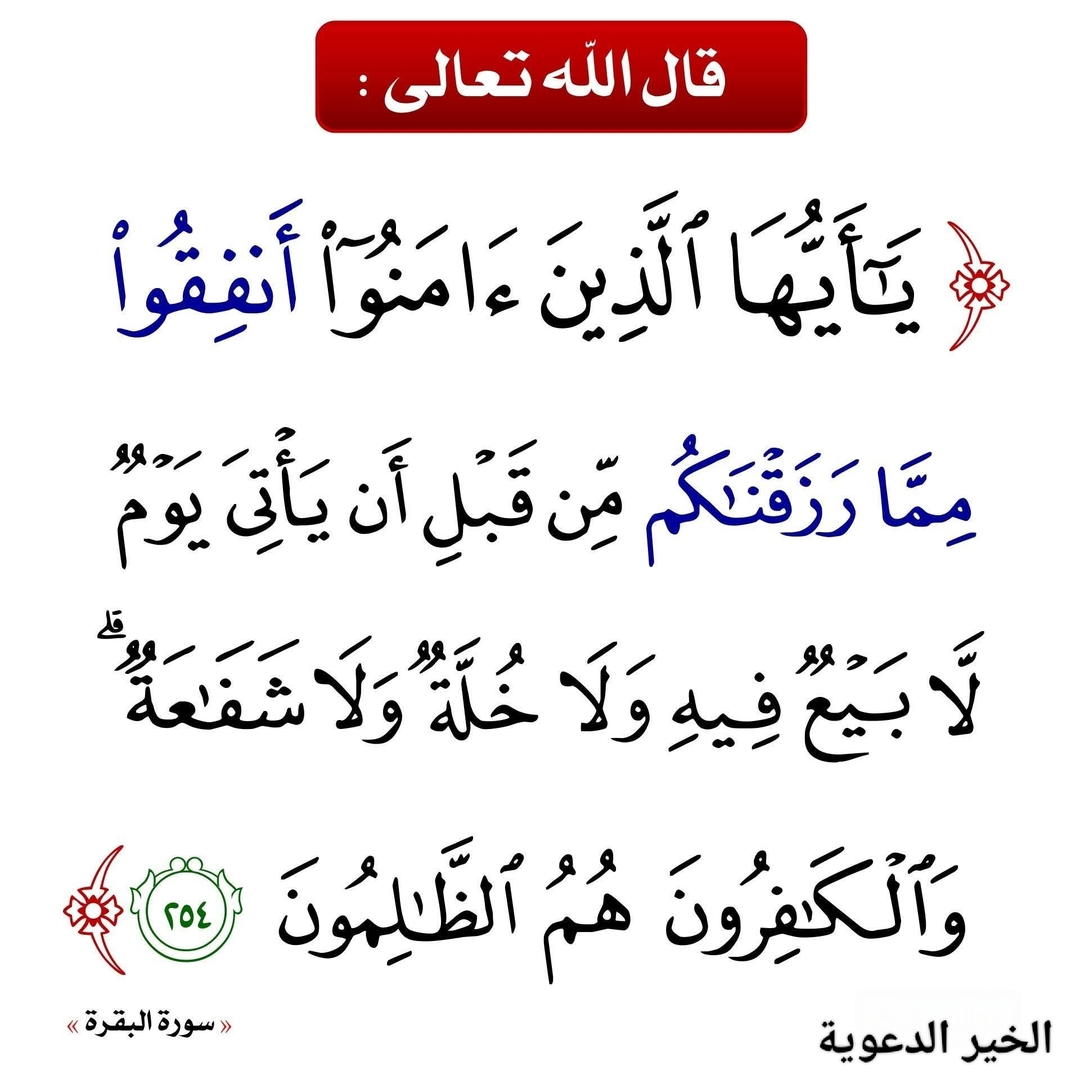 قال الله تعالى :
﴿ يَـٰٓأَيُّهَا ٱلَّذِينَ ءَامَنُوٓا۟ أَنفِقُوا۟
مِمَّا رَزَقْنَـٰكُم مِّن قَبْلِ أَن يَأْتِىَ يَوْمٌ
لَّا بَيْعٌ فِيهِ وَلَا خُلَّةٌ وَلَا شَفَـٰعَةٌ ۗ
وَٱلْكَـٰفِرُونَ هُمُ ٱلظَّـٰلِمُونَ ٢٥٤ ﴾
« سورة البقرة »
الخير الدعوية